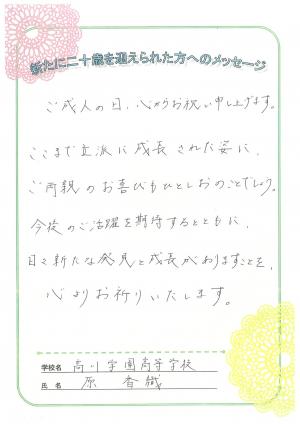 新たに二十歳を迎えられた方へのメッセージ
ご成人の日、心からお祝い申し上げます。
ここまで立派に成長された姿に、
ご両親のお喜びもひとしおのことでしょう。
今後のご活躍を期待するとともに、
日々新たな発見と成長がありますことを、
心よりお祈りいたします。
学校名 高川学園高等学校
氏名 原 香織